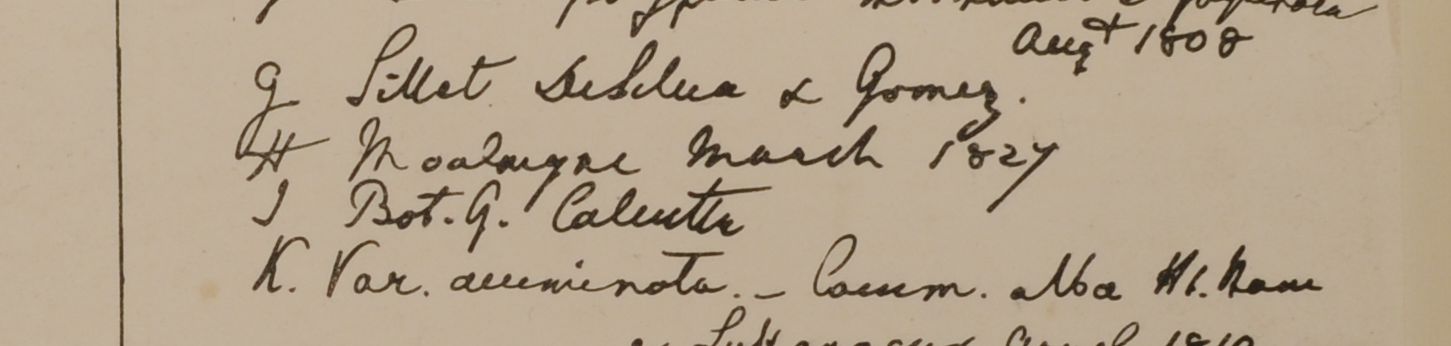 Augt 1808
G Sillet DeSilva & Gomez.
H Moalmyne March 1827
I Bot. G. Calcutta
K. Var. acuminata. - Cocum. alba H¹. Ham